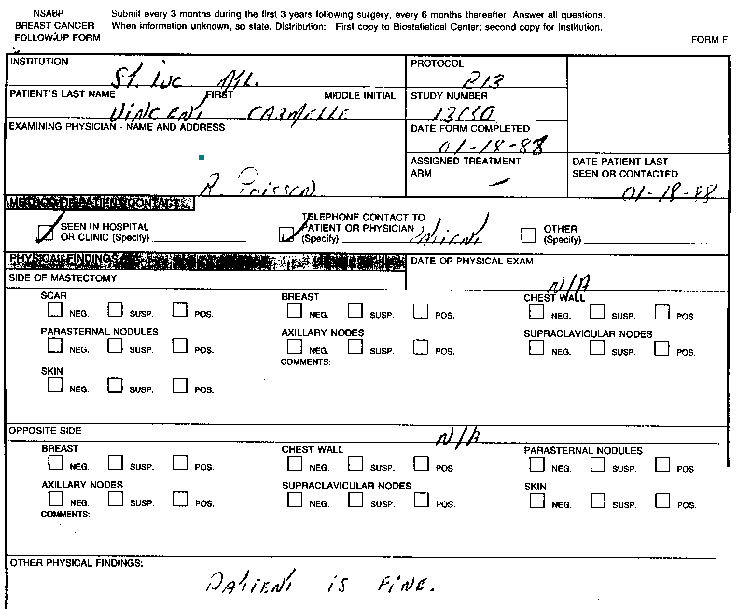 NSABP
BREAST CANCER
FOLLOW-UP FORM
Submit every 3 months during the first 3 years following surgery, every 6 months thereafter. Answer all questions.
When information unknown, so state. Distribution: First copy to Biostatistical Center; second copy for Institution.
FORM F
INSTITUTION
St. Luc Mtl.
PROTOCOL
B13
PATIENT'S LAST NAME FIRST MIDDLE INITIAL
VINCENT CARMELLE
STUDY NUMBER
EXAMINING PHYSICIAN - NAME AND ADDRESS
R. Poisson
DATE FORM COMPLETED
01-18-88
ASSIGNED TREATMENT
ARM
DATE PATIENT LAST
SEEN OR CONTACTED
01-18-88
SEEN IN HOSPITAL
OR CLINIC (Specify)
TELEPHONE CONTACT TO
PATIENT OR PHYSICIAN
(Specify) Patient
OTHER
(Specify)
PHYSICAL FINDINGS
DATE OF PHYSICAL EXAM
N/A
SIDE OF MASTECTOMY
SCAR
NEG. SUSP. POS.
BREAST
NEG. SUSP. POS.
CHEST WALL
NEG. SUSP. POS
PARASTERNAL NODULES
NEG. SUSP. POS.
AXILLARY NODES
NEG. SUSP. POS.
COMMENTS:
SUPRACLAVICULAR NODES
NEG. SUSP. POS.
SKIN
NEG. SUSP. POS.
OPPOSITE SIDE
N/A
BREAST
NEG. SUSP. POS.
CHEST WALL
NEG. SUSP. POS
PARASTERNAL NODULES
NEG. SUSP. POS
AXILLARY NODES
NEG. SUSP. POS.
COMMENTS:
SUPRACLAVICULAR NODES
NEG. SUSP. POS.
SKIN
NEG. SUSP. POS.
OTHER PHYSICAL FINDINGS:
PATIENT IS FINE.